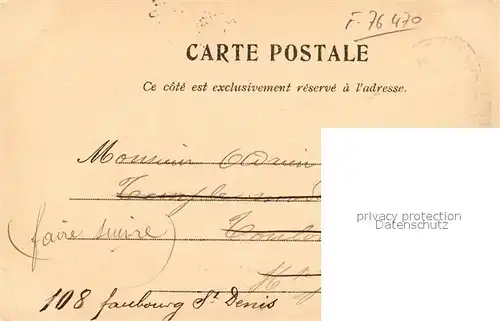 F 76 470
CARTE POSTALE
Ce côté est exclusivement réservé à l'adresse.
Monsieur Adrien
privacy protection
Datenschutz
(faire suivre)
108 faubourg St Denis